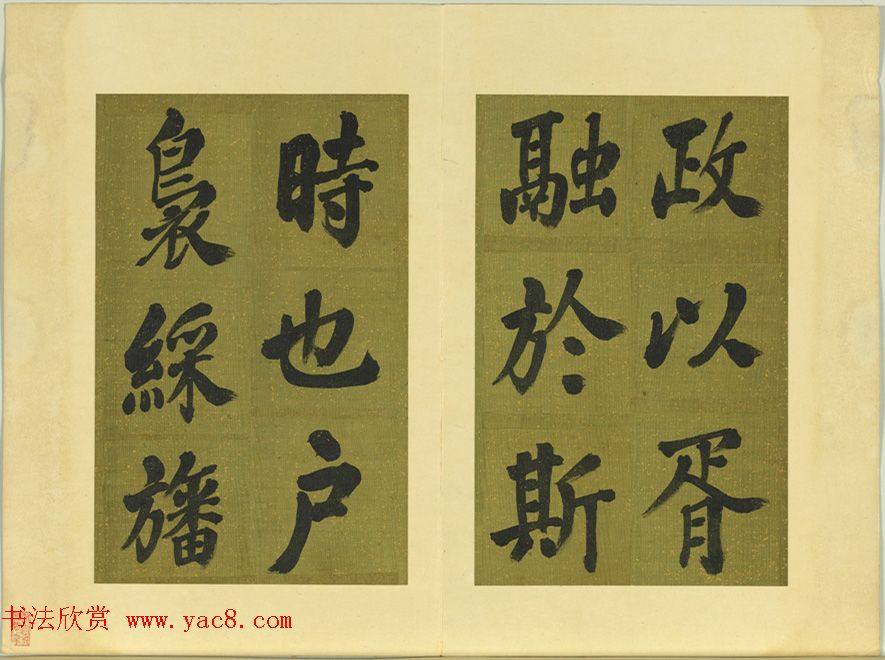 政以胥
融於斯
時也户
裊綵旛
书法欣赏 www.yac8.com